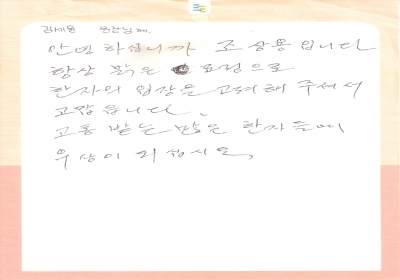 안녕하십니까 조상용입니다
항상 밝은 표정으로
환자의 입장을 고려해 주셔서
고맙습니다.
고통 받는 많은 환자들에
우상이 되십시오,